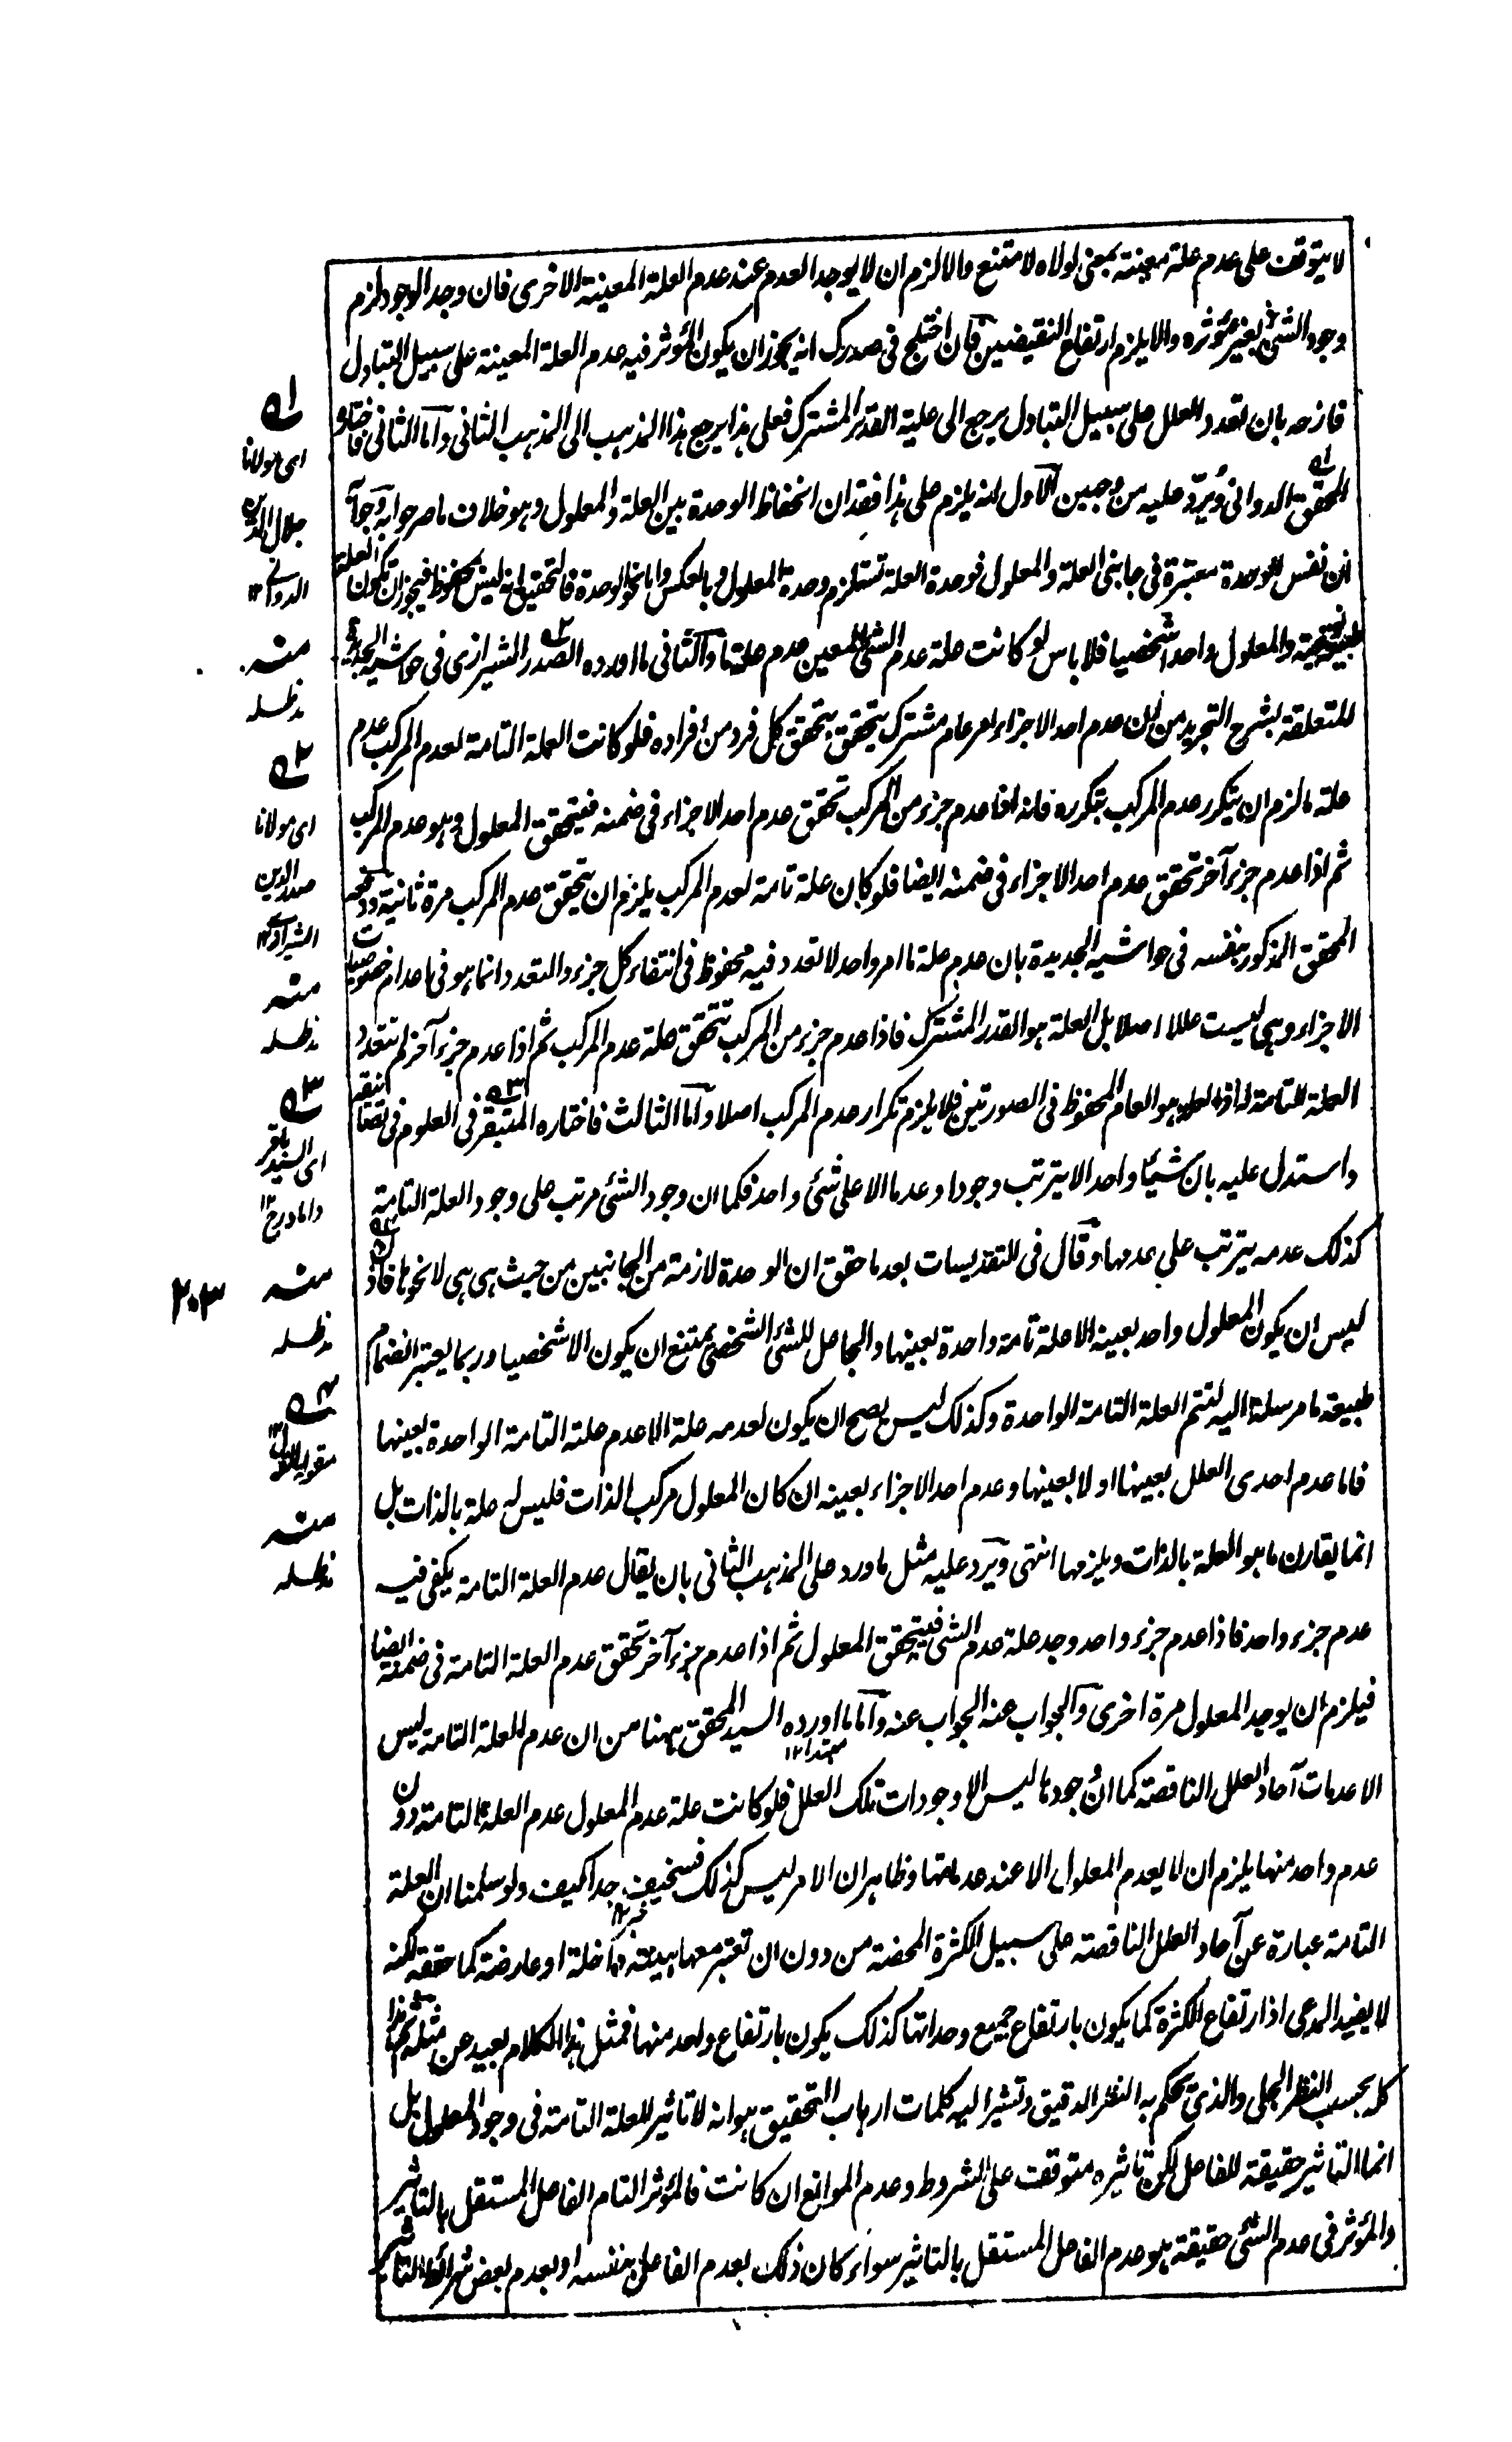 لا يتوقف على عدم علة معينة بمعنى لولاه لامتنع والا لزم ان لا يوجد العدم عند عدم العلة المعينة الاخرى فان وجد الوجود لزم
وجود الشئ بغير مؤثره والا يلزم ارتفاع النقيضين فان اختلج فى صدرك انه يجوز ان يكون المؤثر فيه عدم العلة المعينة على سبيل التبادل
فازحه بان تعدد العلل على سبيل التبادل يرجع الى علية القدر المشترك فعلى هذا يرجع هذا المذهب الى المذهب الثانى واما الثانى فاختاره
المحقق الدوانى ويرد عليه من وجهين الاول انه يلزم على هذا فقدان انحفاظ الوحدة بين العلة والمعلول وهو خلاف ما صرحوا به وجوابه
ان نفس الوحدة معتبرة فى جانبى العلة والمعلول فوحدة العلة تستلزم وحدة المعلول وبالعكس واما نحو الوحدة فالتحقيق انه ليس بمحفوظ فيجوز ان تكون العلة
طبيعية والمعلول واحدا شخصيا فلا باس لو كانت علة عدم الشئ المعين عدم علة ما والثانى ما اورده الصدر الشيرازى فى حواشيه الجديدة
المتعلقة بشرح التجريد من ان عدم احد الاجزاء امر عام مشترك يتحقق بتحقق كل فرد من افراده فلو كانت العلة التامة لعدم المركب عدم
علة ما لزم ان يتكرر عدم المركب بتكرره فانه اذا عدم جزء من المركب تحقق عدم احد الاجزاء فى ضمنه فيتحقق المعلول وهو عدم المركب
ثم اذا عدم جزء آخر تحقق عدم احد الاجزاء فى ضمنه ايضا فلو كان علة تامة لعدم المركب يلزم ان يتحقق عدم المركب مرة ثانية ودفعه
المحقق المذكور بنفسه فى حواشيه الجديدة بان عدم علة ما امر واحد لا تعدد فيه محفوظ فى انتفاء كل جزء والتعدد انما هو فى اعدام خصوصيات
الاجزاء وهى ليست عللا اصلا بل العلة هو القدر المشترك فاذا عدم جزء من المركب تتحقق علة عدم المركب ثم اذا عدم جزء آخر لم تتعدد
العلة التامة له اذ العلة هو العام المحفوظ فى الصورتين فلا يلزم تكرار عدم المركب اصلا واما الثالث فاختاره المتبقر فى العلوم فى تقعا
واستدل عليه بان شيئا واحد الا يترتب وجودا وعدما الا على شئ واحد فكما ان وجود الشئ مرتب على وجود العلة التامة
كذلك عدمه يترتب على عدمها وقال فى التقديسات بعد ما حقق ان الوحدة لازمة من الجانبين من حيث هى هى لا نحوها فاذن
ليس ان يكون المعلول واحد بعينه الا علة تامة واحدة بعينها والجاعل للشئ الشخصى يمتنع ان يكون الا شخصيا وربما يعتبر انضمام
طبيعة ما مرسلة اليه لتتم العلة التامة الواحدة وكذلك ليس يصح ان يكون لعدمه علة الا عدم علته التامة الواحدة بعينها
فاما عدم احدى العلل بعينها او لا بعينها وعدم احد الاجزاء بعينه ان كان المعلول مركب الذات فليس له علة بالذات بل
انما يقارن ما هو العلة بالذات ويلزمها انتهى ويرد عليه مثل ما ورد على المذهب الثانى بان يقال عدم العلة التامة يكفى فيه
عدم جزء واحد فاذا عدم جزء واحد وجد علة عدم الشئ فيتحقق المعلول ثم اذا عدم جزء آخر تحقق عدم العلة التامة فى ضمنه ايضا
فيلزم ان يوجد المعلول مرة اخرى والجواب عنه الجواب عنه واما ما اورده السيد المحقق ههنا من ان عدم العلة التامة ليس
مبتدا ١٢
الا عدمات آحاد العلل الناقصة كما ان وجودها ليس الا وجودات تلك العلل فلو كانت علة عدم المعلول عدم العلة التامة دون
عدم واحد منها يلزم ان لا يعدم المعلول الا عند عدماتها وظاهر ان الامر ليس كذلك فسخيف جدا كيف ولو سلمنا ان العلة
خبر ١٢
التامة عبارة عن آحاد العلل الناقصة على سبيل الكثرة المحضة من دون ان تعتبر معها هيئة داخلة او عارضة كما حققه لكنه
لا يفيد المدعى اذ ارتفاع الكثرة كما يكون بارتفاع جميع وحداتها كذلك يكون بارتفاع واحد منها فمثل هذا الكلام بعيد عن مثله هذا
كله بحسب النظر الجلى والذى يحكم به النظر الدقيق وتشير اليه كلمات ارباب التحقيق هو انه لا تاثير للعلة التامة فى وجود المعلول بل
انما التاثير حقيقة للفاعل لكن تاثيره متوقف على الشروط وعدم الموانع ان كانت فالمؤثر التام الفاعل المستقل بالتاثير
والمؤثر فى عدم الشئ حقيقة هو عدم الفاعل المستقل بالتاثير سواء كان ذلك بعدم الفاعل بنفسه او بعدم بعض شرائط التاثير
١ه
اى مولانا
جلال الدين
الدوانى ١٢
منه
مدظله
٢ه
اى مولانا
صدر الدين
الشيرازى ١٢
منه
مدظله
٣ه
اى السيد باقر
داماد رح ١٢
منه
مدظله
٤ه
منه
مدظله
٢٠٣